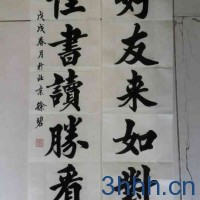 好友来如對
佳書讀勝看
戊戌春月於北京徐碧
3hhh.cn